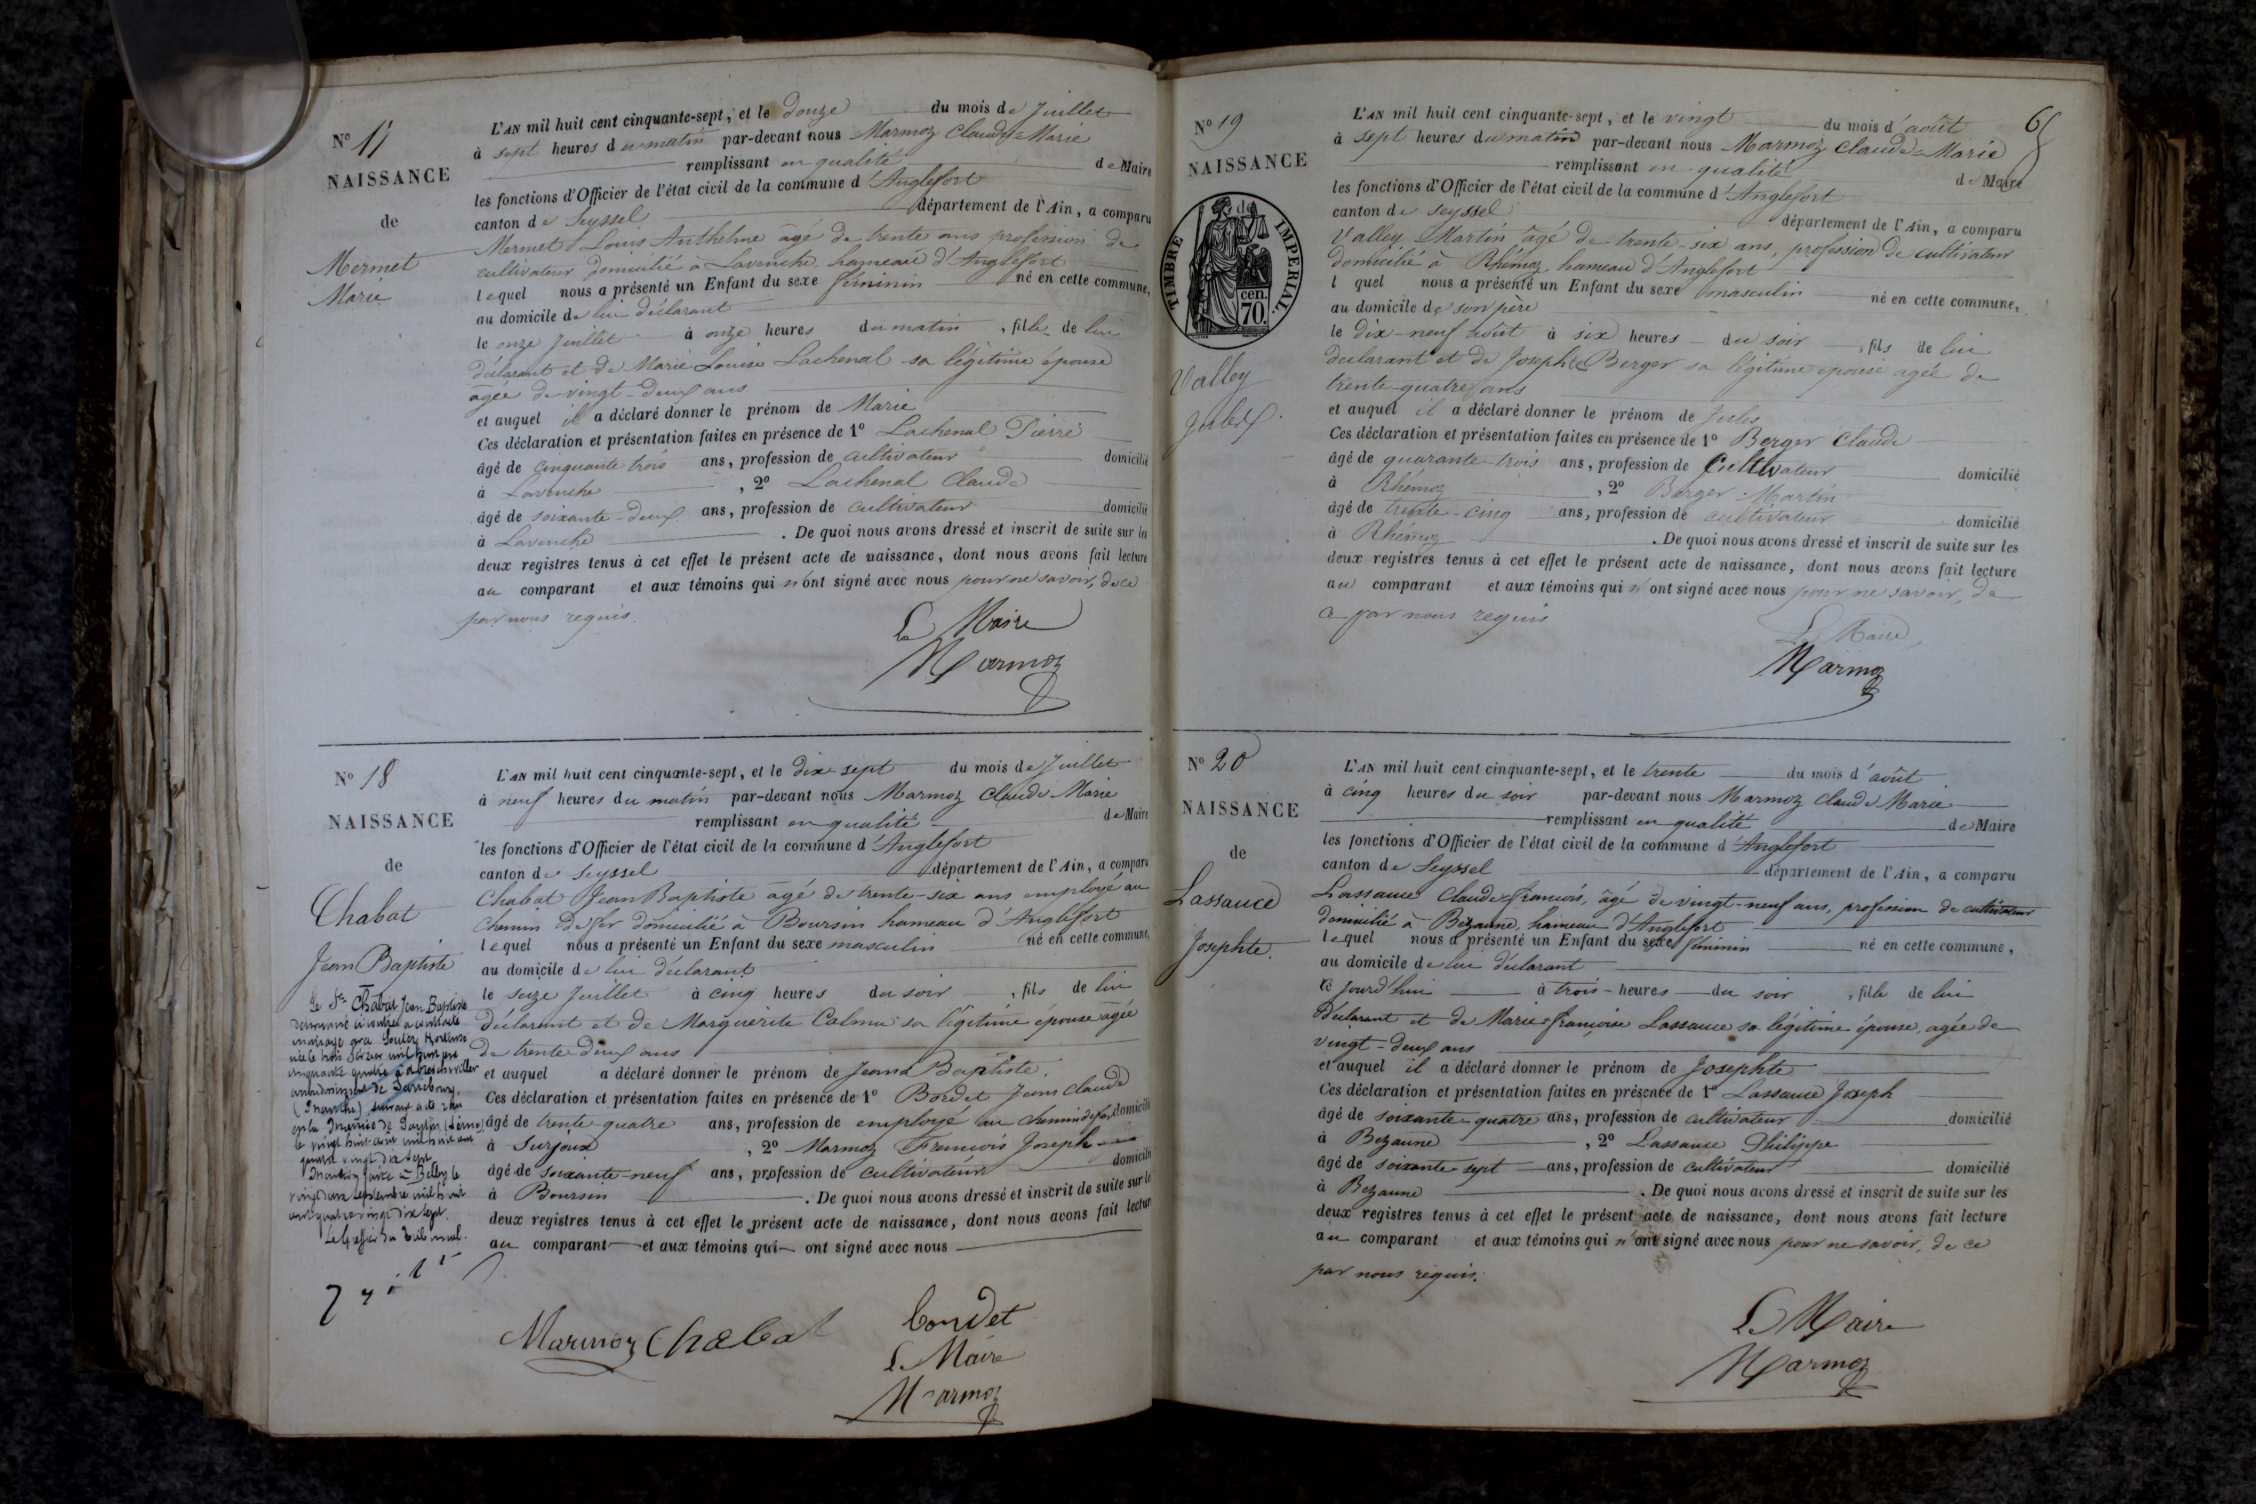 N° 17
NAISSANCE
de
Mermet
Marie
L'AN mil huit cent cinquante-sept, et le douze du mois de Juillet
à sept heures du matin par-devant nous Marmoz Claude-Marie
remplissant en qualité de Maire
les fonctions d'Officier de l'état civil de la commune d'Anglefort
canton de Seyssel département de l'Ain, a comparu
Mermet Louis Anthelme âgé de trente ans profession de
cultivateur domicilié à Lavenche hameau d'Anglefort
lequel nous a présenté un Enfant du sexe féminin né en cette commune,
au domicile de lui déclarant
le onze Juillet à onze heures du matin, fille de lui
déclarant et de Marie Louise Lachenal sa légitime épouse
âgée de vingt-deux ans
et auquel il a déclaré donner le prénom de Marie
Ces déclaration et présentation faites en présence de 1° Lachenal Pierre
âgé de cinquante trois ans, profession de cultivateur domicilié
à Lavenche, 2° Lachenal Claude
âgé de soixante-deux ans, profession de cultivateur domicilié
à Lavenche. De quoi nous avons dressé et inscrit de suite sur les
deux registres tenus à cet effet le présent acte de naissance, dont nous avons fait lecture
au comparant et aux témoins qui n'ont signé avec nous pour ne savoir, de ce
par nous requis.
Le Maire
Marmoz
N° 18
NAISSANCE
de
Chabat
Jean Baptiste
Le Sr Chabat Jean Baptiste
dénommé ci contre a contracté
mariage avec
née le trois février mil huit cent
cinquante quatre à Abreschviller
arrondissement de Sarrebourg
(Meurthe) suivant acte reçu
en la Mairie de
le vingt huit août mil huit cent
quatre vingt dix sept
Mention faite à Belley le
vingt deux septembre mil huit
cent quatre vingt dix sept.
Le Greffier du Tribunal.
L'AN mil huit cent cinquante-sept, et le dix-sept du mois de Juillet
à neuf heures du matin par-devant nous Marmoz Claude Marie
remplissant en qualité de Maire
les fonctions d'Officier de l'état civil de la commune d'Anglefort
canton de Seyssel département de l'Ain, a comparu
Chabat Jean Baptiste âgé de trente-six ans employé au
chemin de fer domicilié à Boursin hameau d'Anglefort
lequel nous a présenté un Enfant du sexe masculin né en cette commune,
au domicile de lui déclarant
le seize Juillet à cinq heures du soir, fils de lui
déclarant et de Marguerite Calma sa légitime épouse âgée
de trente deux ans
et auquel a déclaré donner le prénom de Jean Baptiste.
Ces déclaration et présentation faites en présence de 1° Bordet Jean Claude
âgé de trente quatre ans, profession de employé au chemin de fer, domicilié
à Surjoux, 2° Marmoz François Joseph
âgé de soixante-neuf ans, profession de cultivateur domicilié
à Boursin. De quoi nous avons dressé et inscrit de suite sur les
deux registres tenus à cet effet le présent acte de naissance, dont nous avons fait lecture
au comparant et aux témoins qui ont signé avec nous
Marmoz Chabat Bordet
Le Maire
Marmoz
65
N° 19
NAISSANCE
de
TIMBRE IMPERIAL.
70. cen.
Valley
Jules
L'AN mil huit cent cinquante-sept, et le vingt du mois d'août
à sept heures du matin par-devant nous Marmoz Claude-Marie
remplissant en qualité de Maire
les fonctions d'Officier de l'état civil de la commune d'Anglefort
canton de Seyssel département de l'Ain, a comparu
Valley Martin âgé de trente-six ans, profession de cultivateur
domicilié à Rhémoz, hameau d'Anglefort
l quel nous a présenté un Enfant du sexe masculin né en cette commune,
au domicile de son père
le dix-neuf août à six heures du soir, fils de lui
déclarant et de Josephte Berger sa légitime épouse âgée de
trente-quatre ans
et auquel il a déclaré donner le prénom de Jules
Ces déclaration et présentation faites en présence de 1° Berger Claude
âgé de quarante-trois ans, profession de Cultivateur domicilié
à Rhémoz, 2° Berger Martin
âgé de trente-cinq ans, profession de cultivateur domicilié
à Rhémoz. De quoi nous avons dressé et inscrit de suite sur les
deux registres tenus à cet effet le présent acte de naissance, dont nous avons fait lecture
au comparant et aux témoins qui n'ont signé avec nous pour ne savoir, de
ce par nous requis
Le Maire
Marmoz
N° 20
NAISSANCE
de
Lassauce
Josephte.
L'AN mil huit cent cinquante-sept, et le trente du mois d'août
à cinq heures du soir par-devant nous Marmoz Claude Marie
remplissant en qualité de Maire
les fonctions d'Officier de l'état civil de la commune d'Anglefort
canton de Seyssel département de l'Ain, a comparu
Lassauce Claude-françois, âgé de vingt-neuf ans, profession de cultivateur
domicilié à Bezanne, hameau d'Anglefort
lequel nous a présenté un Enfant du sexe féminin né en cette commune,
au domicile de lui déclarant
le jourd'hui à trois heures du soir, fille de lui
déclarant et de Marie-françoise Lassauce sa légitime épouse, âgée de
vingt-deux ans
et auquel il a déclaré donner le prénom de Josephte
Ces déclaration et présentation faites en présence de 1° Lassauce Joseph
âgé de soixante-quatre ans, profession de cultivateur domicilié
à Bezanne, 2° Lassauce Philippe
âgé de soixante-sept ans, profession de cultivateur domicilié
à Bezanne. De quoi nous avons dressé et inscrit de suite sur les
deux registres tenus à cet effet le présent acte de naissance, dont nous avons fait lecture
au comparant et aux témoins qui n'ont signé avec nous pour ne savoir, de ce
par nous requis.
Le Maire
Marmoz